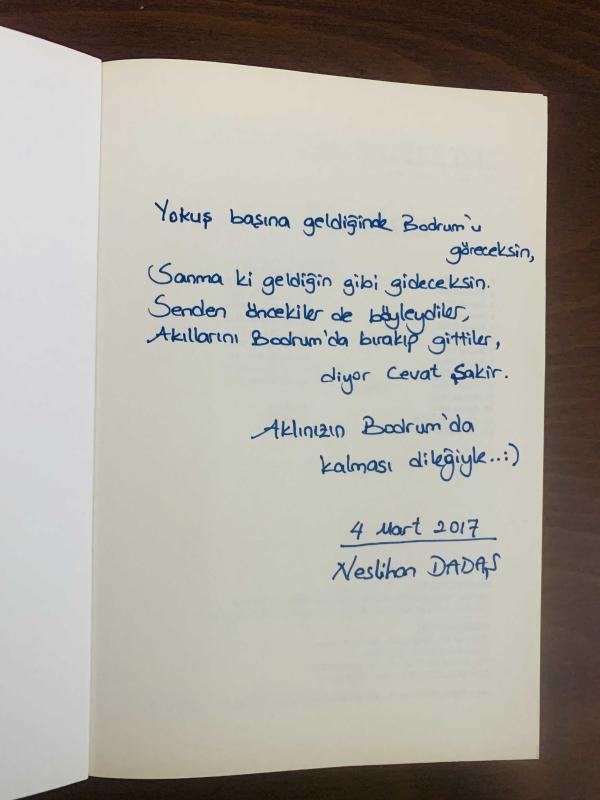 Yokuş başına geldiğinde Bodrum'u
göreceksin,
Sanma ki geldiğin gibi gideceksin.
Senden öncekiler de böyleydiler,
Akıllarını Bodrum'da bırakıp gittiler,
diyor Cevat Şakir.
Aklınızın Bodrum'da
kalması dileğiyle..:)
4 Mart 2017
Neslihan DADAŞ